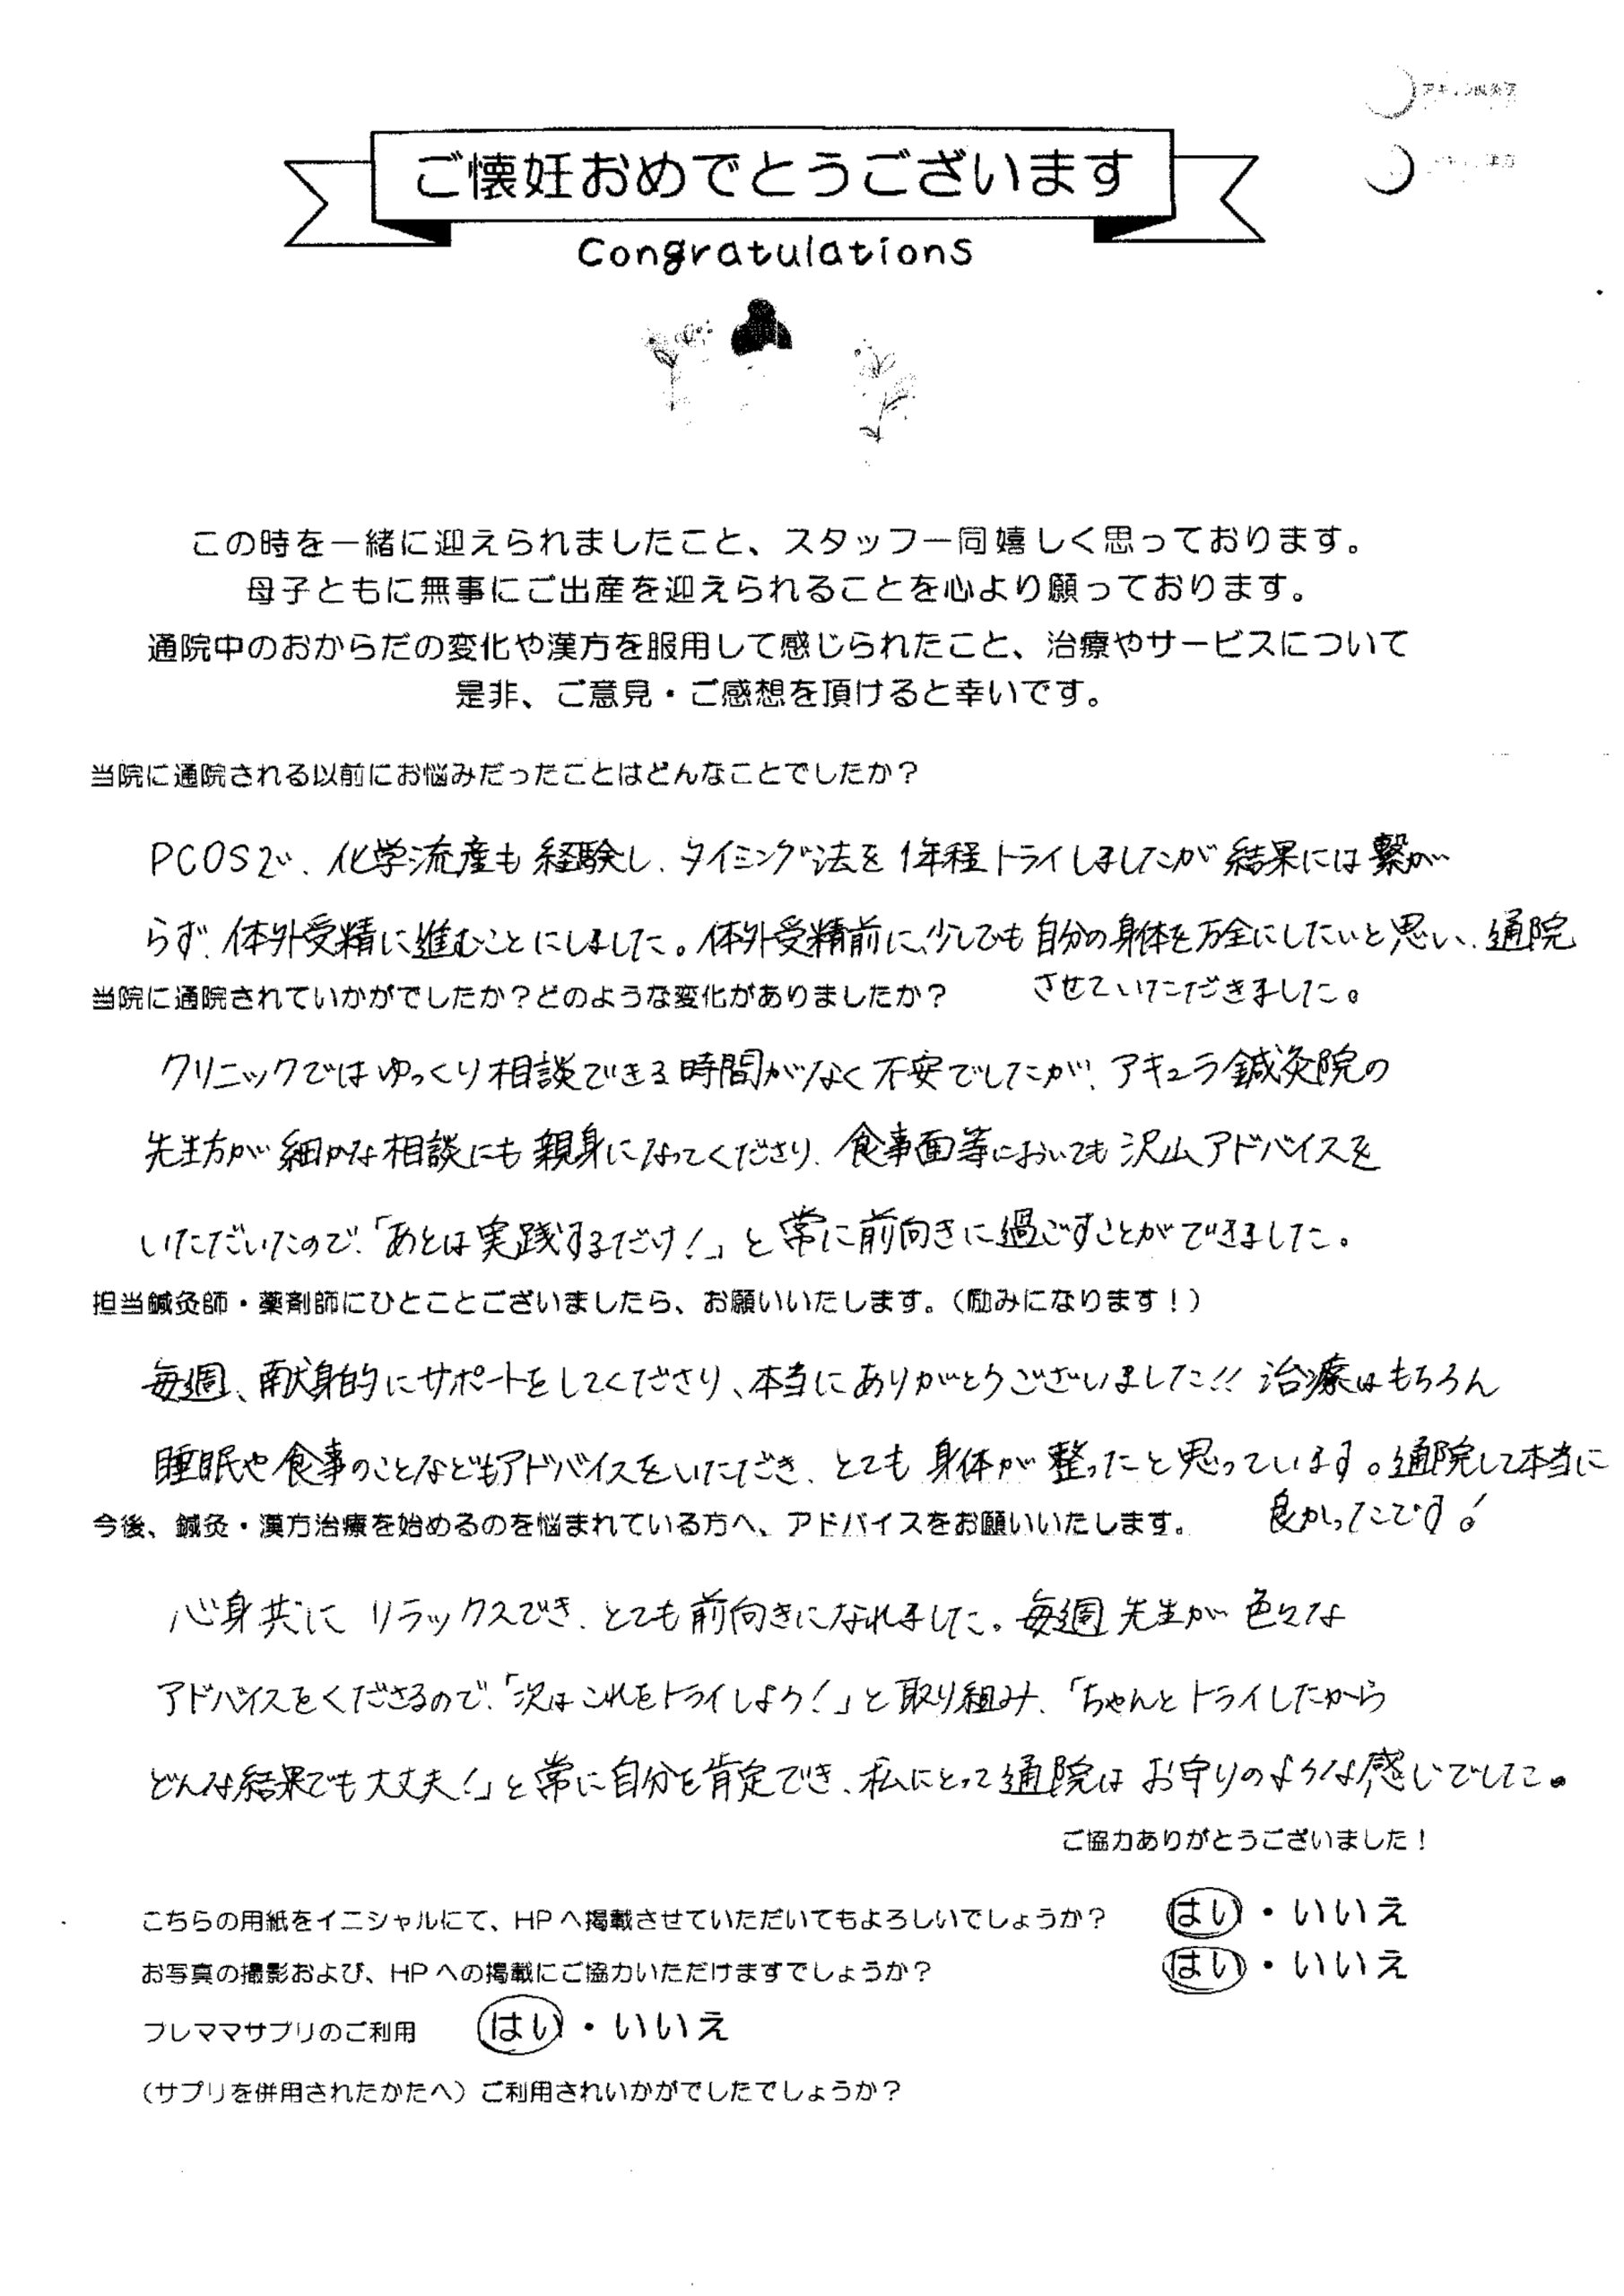 ご懐妊おめでとうございます
Congratulations
この時を一緒に迎えられましたこと、スタッフ一同嬉しく思っております。
母子ともに無事にご出産を迎えられることを心より願っております。
通院中のおからだの変化や漢方を服用して感じられたこと、治療やサービスについて
是非、ご意見・ご感想を頂けると幸いです。
当院に通院される以前にお悩みだったことはどんなことでしたか?
PCOSで、化学流産も経験し、タイミング法を1年程トライしましたが結果には繋が
らず、体外受精に進むことにしました。体外受精前に、少しでも自分の身体を万全にしたいと思い、通院
させていただきました。
当院に通院されていかがでしたか?どのような変化がありましたか?
クリニックではゆっくり相談できる時間がなく不安でしたが、アキュラ鍼灸院の
先生方が細かな相談にも親身になってくださり、食事面等においても沢山アドバイスを
いただいたので、「あとは実践するだけ!」と常に前向きに過ごすことができました。
担当鍼灸師・薬剤師にひとことございましたら、お願いいたします。(励みになります!)
毎週、献身的にサポートをしてくださり、本当にありがとうございました!! 治療はもちろん
睡眠や食事のことなどもアドバイスをいただき、とても身体が整ったと思っています。通院して本当に
良かったです!
今後、鍼灸・漢方治療を始めるのを悩まれている方へ、アドバイスをお願いいたします。
心身共に リラックスでき、とても前向きになれました。毎週先生が色々な
アドバイスをくださるので、「次はこれをトライしよう!」と取り組み、「ちゃんとトライしたから
どんな結果でも大丈夫!」と常に自分を肯定でき、私にとって通院はお守りのような感じでした。
ご協力ありがとうございました!
こちらの用紙をイニシャルにて、HPへ掲載させていただいてもよろしいでしょうか? はい・いいえ
お写真の撮影および、HPへの掲載にご協力いただけますでしょうか? はい・いいえ
プレママサプリのご利用 はい・いいえ
(サプリを併用されたかたへ)ご利用されいかがでしたでしょうか?